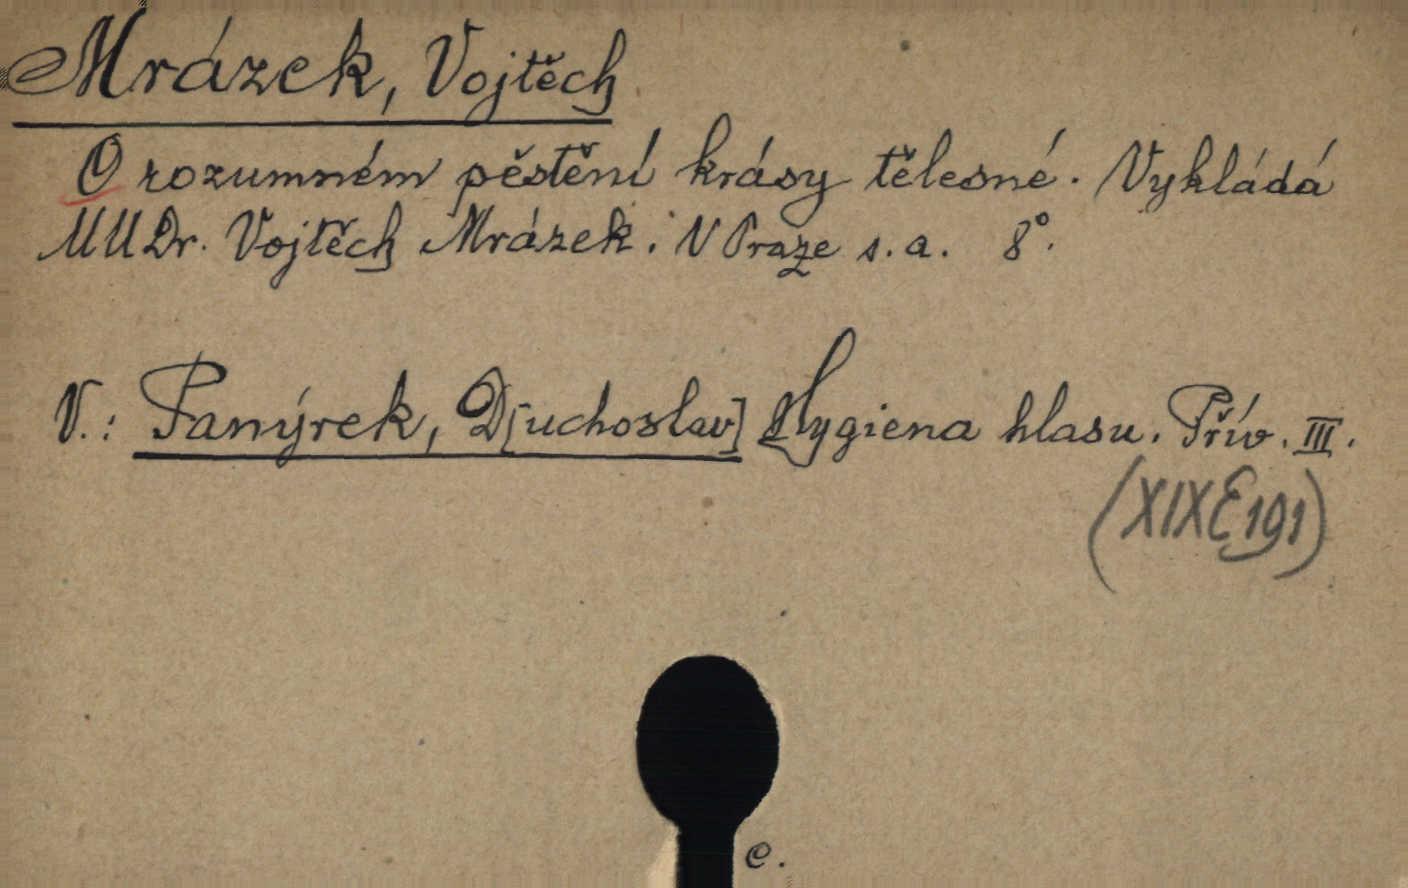 Mrázek, Vojtěch
O rozumném pěstění krásy tělesné. Vykládá
MUDr. Vojtěch Mrázek. V Praze s.a. 8°.
V.: Panýrek, D[uchoslav] Hygiena hlasu. Přív. III.
(XIXE191)
e.